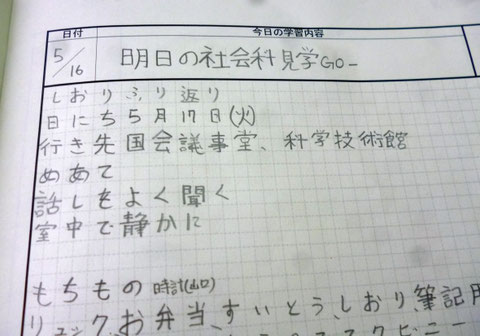 日付 今日の学習内容
5/16 明日の社会科見学GO-
しおりふり返り
日にち5月17日(火)
行き先国会議事堂、科学技術館
めあて
話しをよく聞く
室中で静かに
もちもの時計(山口)
リュックお弁当、すいとう、しおり、筆記用